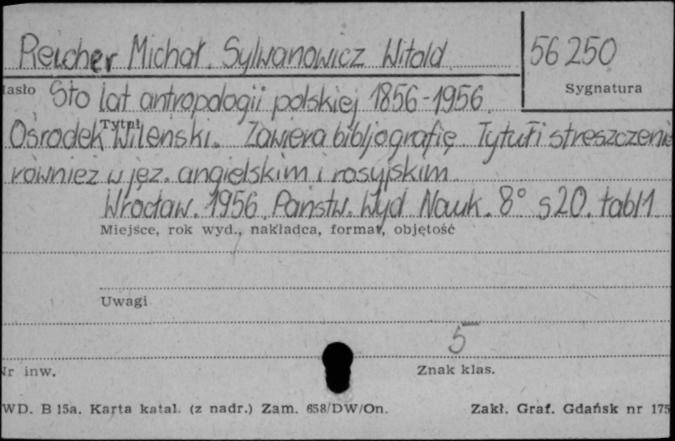 Reicher Michał. Sylwanowicz Witold 56 250
Hasło Sygnatura
Sto lat antropologii polskiej 1856-1956.
Tytuł
Ośrodek Wileński. Zawiera bibljografię Tytuł i streszczenie
również w jęz. angielskim i rosyjskim
Wrocław. 1956. Państw. Wyd Nauk. 8° s20. tabl1
Miejsce, rok wyd., nakładca, format, objętość
Uwagi
5
Nr inw. Znak klas.
WD. B 15a. Karta katal. (z nadr.) Zam. 658/DW/On. Zakł. Graf. Gdańsk nr 175